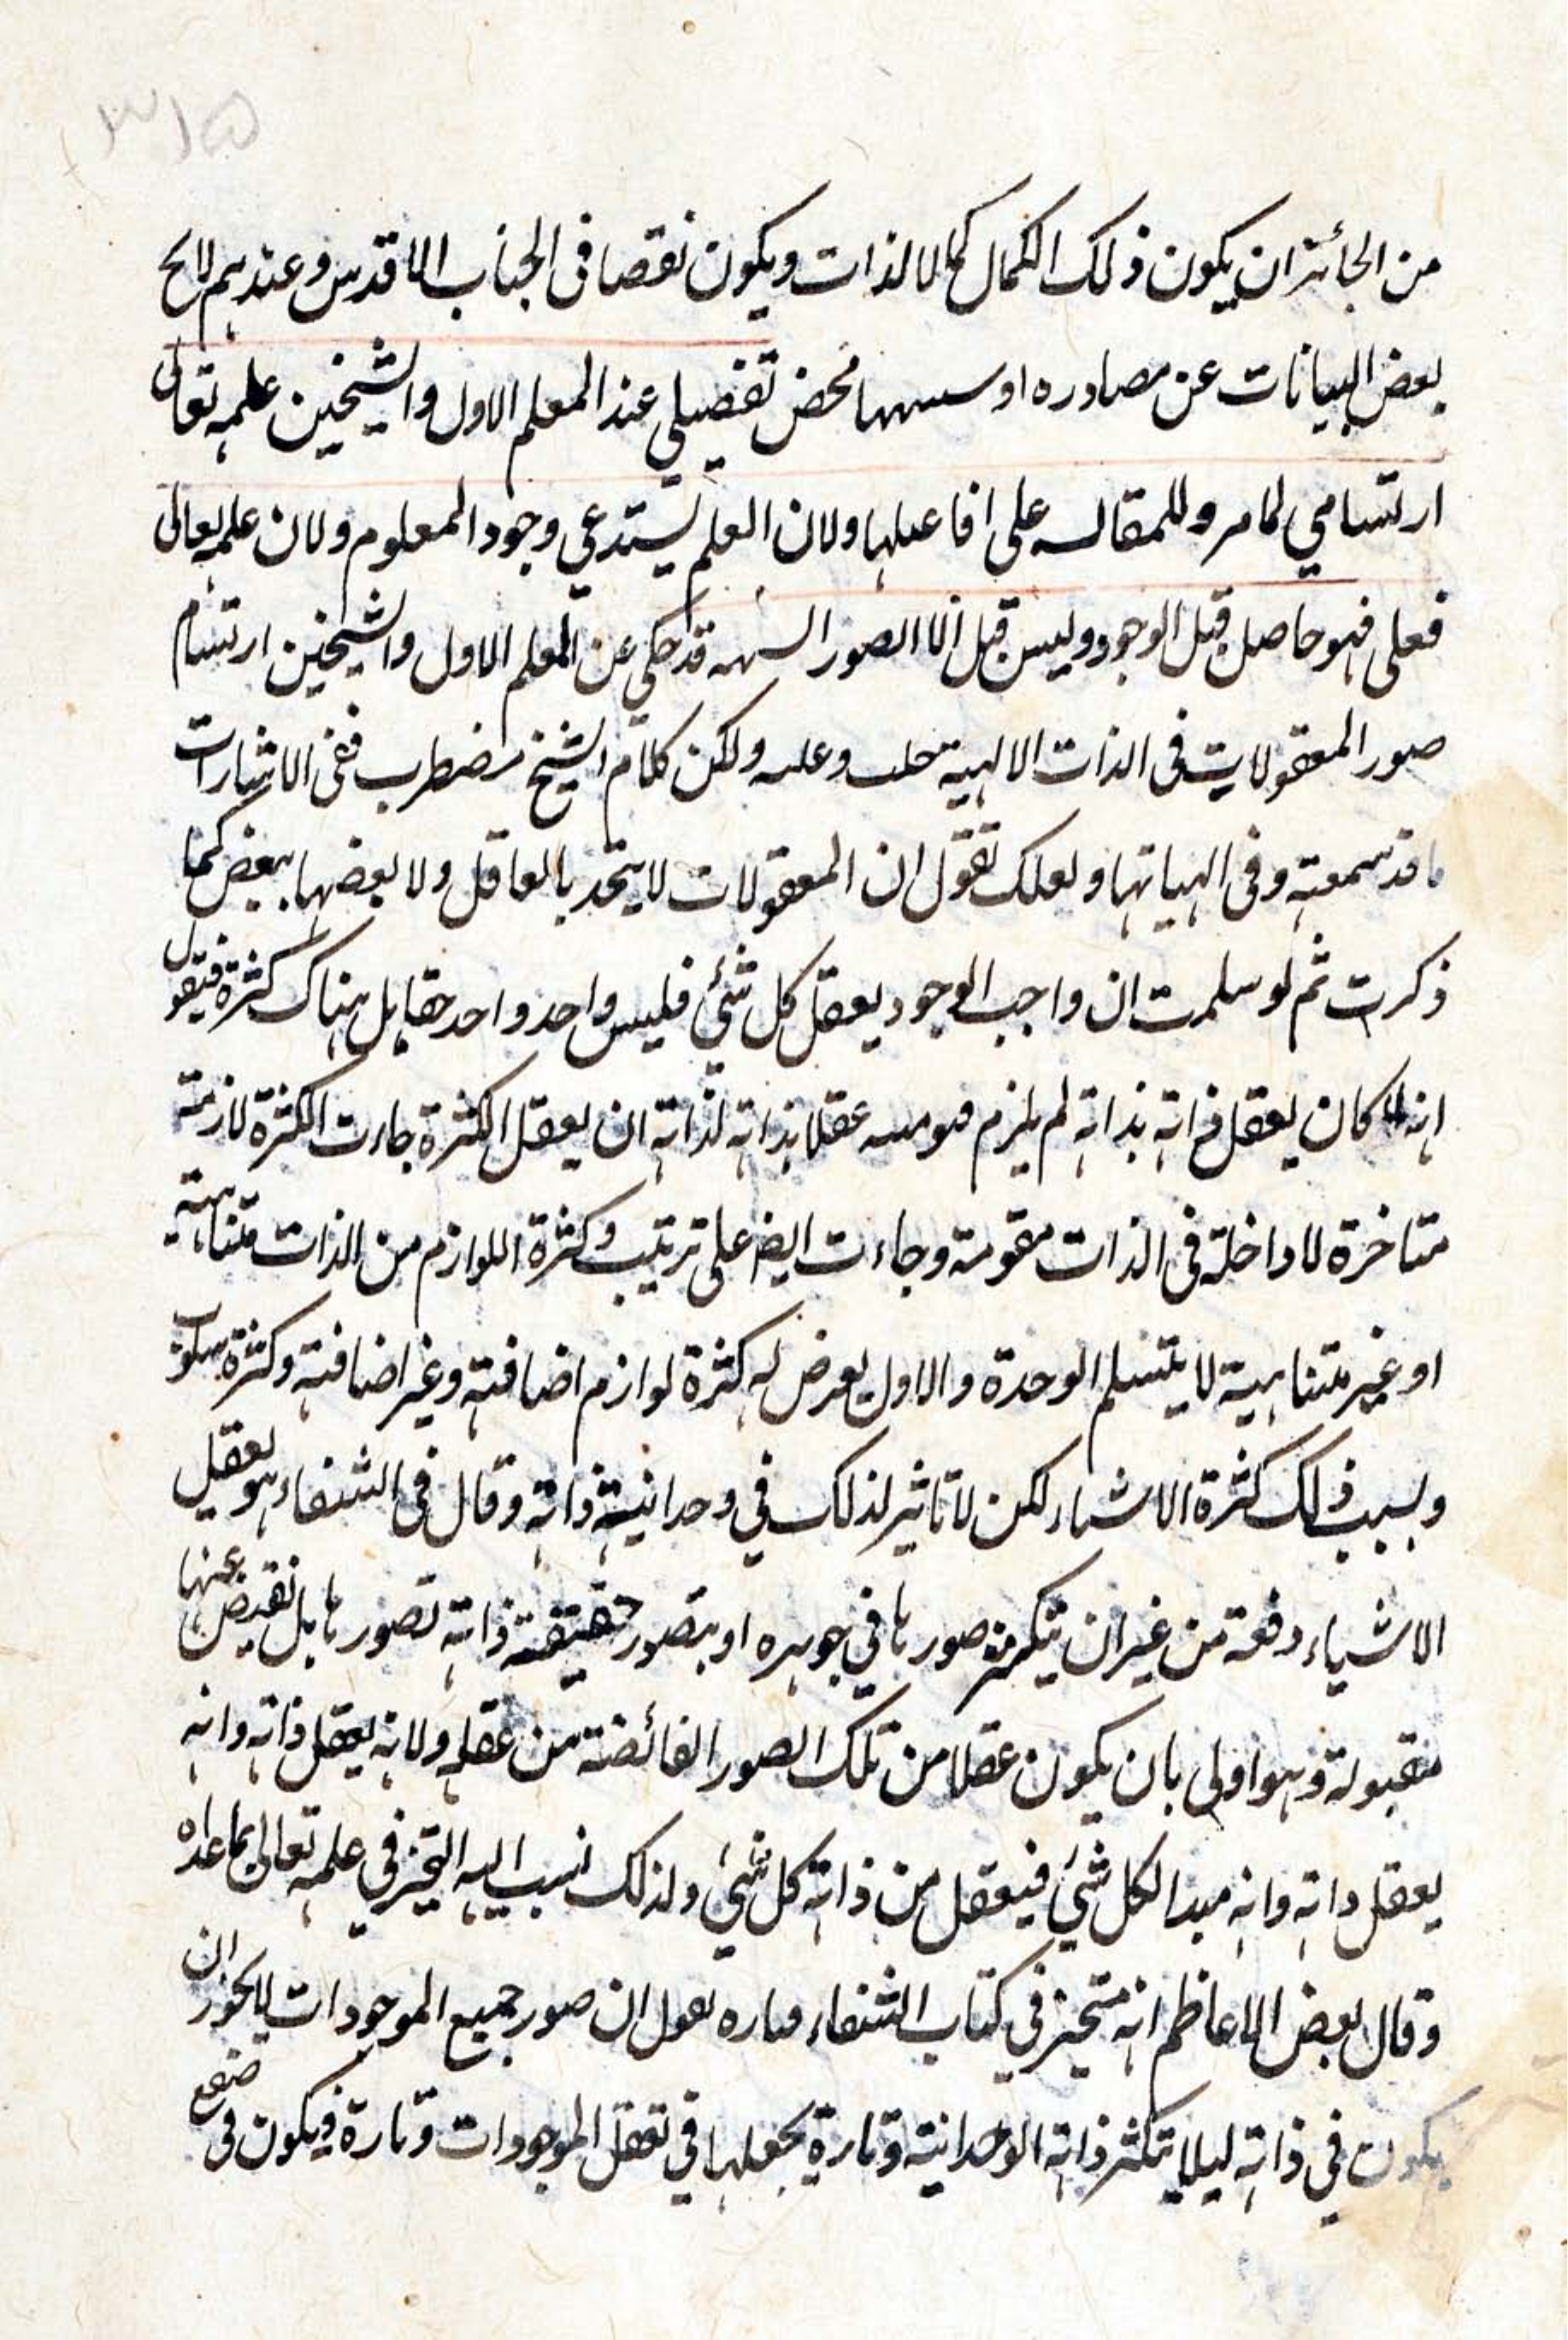 ٣١٥
من الجائز ان يكون ذلك الكمال كمالا لذات ويكون نقصا فى الجناب الاقدس وعندهم لاح
بعض البيانات عن مصادره او محض تفصيلي عند المعلم الاول والشيخين علمه تعالى
ارتسامي لما مر وللمقالـه على افاعيلها ولان العلم يستدعي وجود المعلوم ولان علمه تعالى
فعلى فهو حاصل قبل الوجود وليس قبل الا الصور قد حكي عن المعلم الاول والشيخين ارتسام
صور المعقولات فى الذات الالهية ولكن كلام الشيخ مضطرب ففى الاشارات
ما قد سمعته وفى الهياتها ولعلك تقول ان المعقولات لا يتحد بالعاقل ولا بعضها ببعض كما
ذكرت ثم لو سلمت ان واجب الوجود يعقل كل شئ فليس واحد واحد حقا بل هناك كثرة فيقول
انه لما كان يعقل ذاته بذاته لم يلزم عقلا بذاته لذاته ان يعقل الكثرة جاءت الكثرة لازمة
متاخرة لا داخلة فى الذات مقومة وجاءت ايضا على ترتيب وكثرة اللوازم من الذات متناهية
او غير متناهية لا يتسلم الوحدة والاول يعرض له كثرة لوازم اضافية وغير اضافية وكثرة سلوب
وبسبب ذلك كثرة الاسماء لكن لا تاثير لذلك في وحدانية ذاته وقال فى الشفاء هو يعقل
الاشياء دفعة من غير ان يتكثر صورها في جوهره او يتصور حقيقة ذاته تصورها بل نقيض عنها
مقبولة وهو اولى بان يكون عقلا من تلك الصور الفائضة من عقله ولانه يعقل ذاته وانه
يعقل داته وانه مبدا لكل شئ فيعقل من ذاته كل شئ ولذلك نسب اليه التحيز في علمه تعالى بما عداه
وقال بعض الاعاظم انه متحيز في كتاب الشفاء فتاره يقول ان صور جميع الموجودات لا يجوز ان
يكون في ذاته ليلا يتكثر ذاته الوحدانية وتارة يجعلها في تعقل الموجودات وتارة فيكون فى صقع